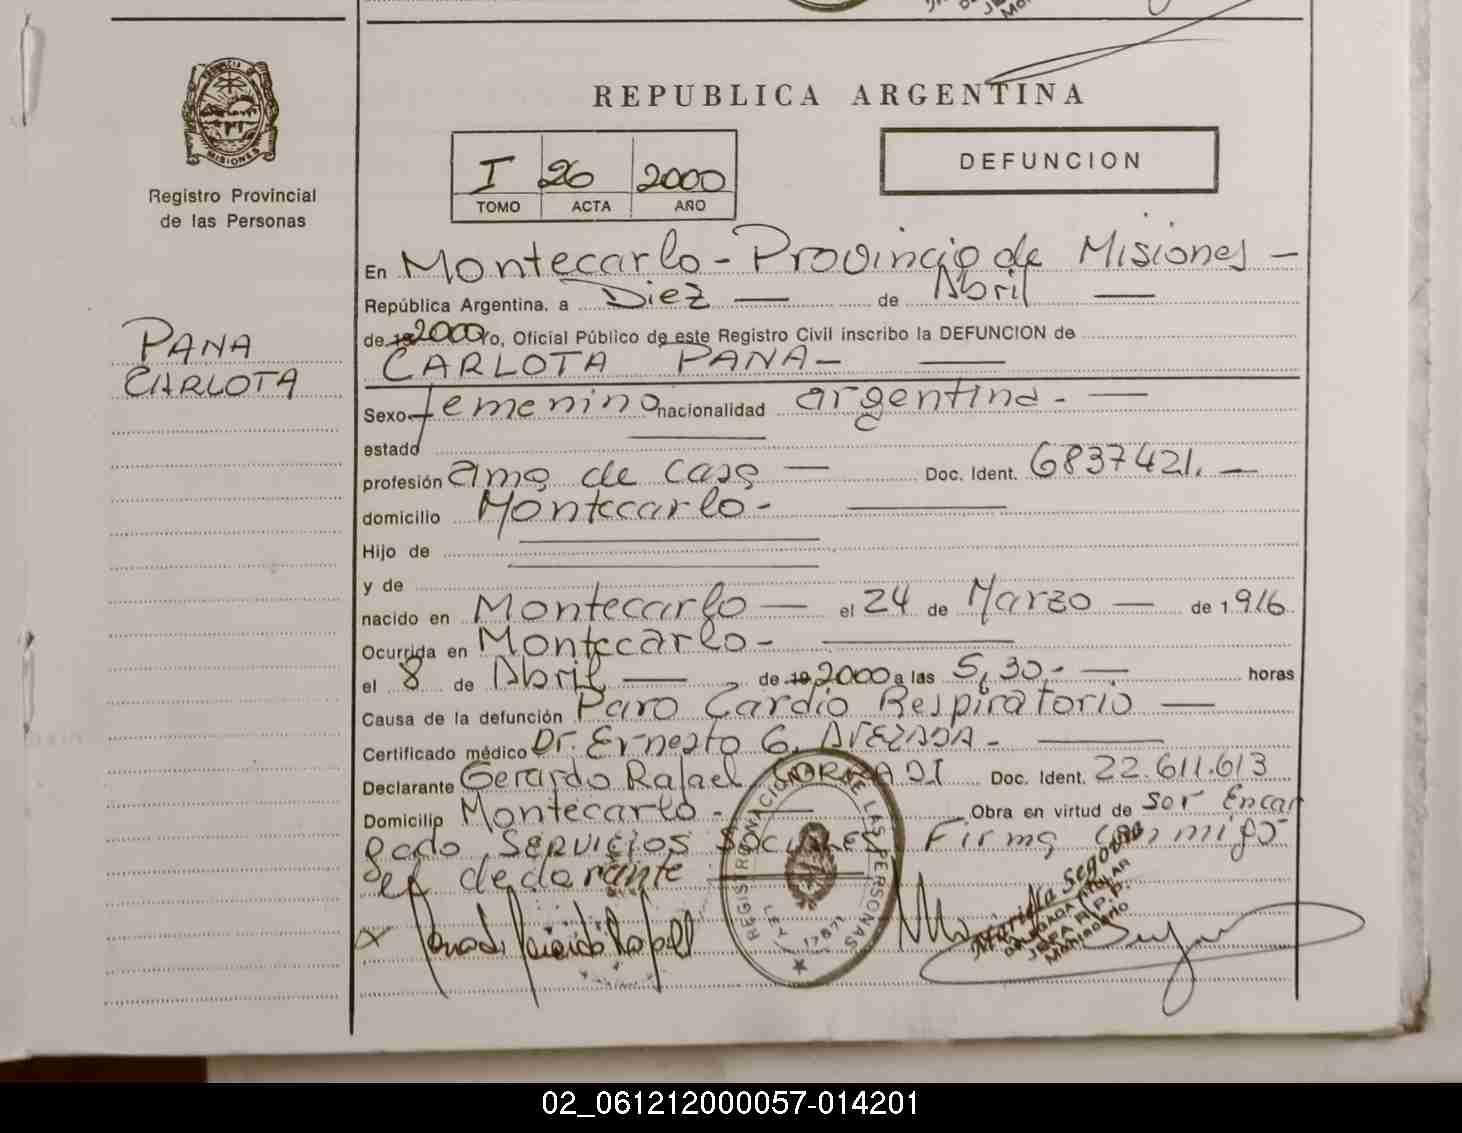 REPUBLICA ARGENTINA
PROVINCIA DE
MISIONES
Registro Provincial
de las Personas
I 26 2000
TOMO ACTA AÑO
DEFUNCION
PANA
CARLOTA
En Montecarlo - Provincia de Misiones -
República Argentina, a Diez — de Abril —
de 2000 yo, Oficial Público de este Registro Civil inscribo la DEFUNCION de
CARLOTA PANA -
Sexo femenino nacionalidad argentina - —
estado
profesión ama de casa — Doc. Ident. 6837421. —
domicilio Montecarlo -
Hijo de
y de
nacido en Montecarlo — el 24 de Marzo — de 1916
Ocurrida en Montecarlo -
el 8 de Abril — de 19 2000 a las 5,30.- — horas
Causa de la defunción Paro Cardio Respiratorio —
Certificado médico Dr. Ernesto G.
Declarante Gerardo Rafael Doc. Ident. 22.611.613
Domicilio Montecarlo - Obra en virtud de ser Encar
gado Servicios Sociales Firma conmigo
el declarante
REGISTRO NACIONAL DE LAS PERSONAS
LEY 17671
Mariella Segovia
DELEGADA TITULAR
JEFA R.P.P.
Montecarlo
02_061212000057-014201